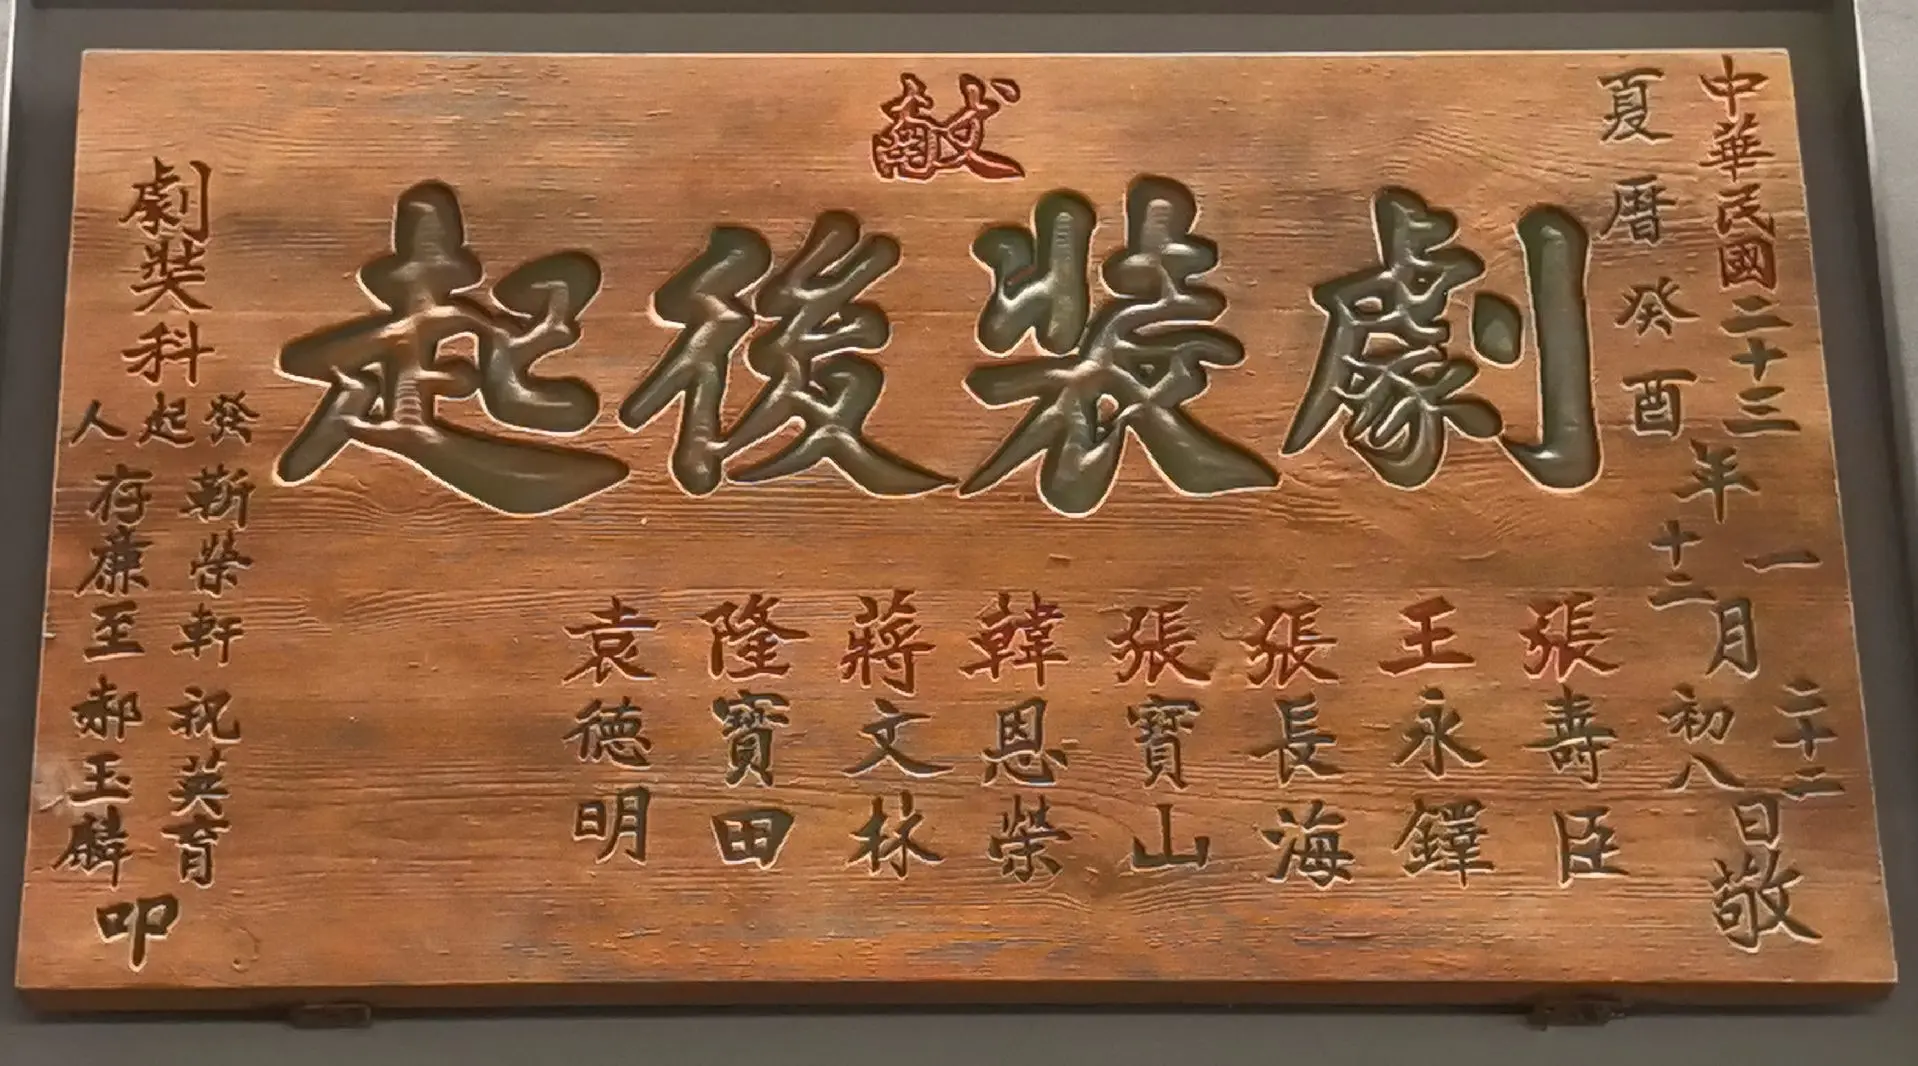 中華民國二十三
夏曆癸酉
年
一
十二
月
二十二
初八
日敬
献
劇裝後起
張壽臣
王永鐸
張長海
張寶山
韓恩榮
蔣文林
隆寶田
袁德明
劇奘科
發起人
靳榮軒 祝英育
存廉至 郝玉麟
叩